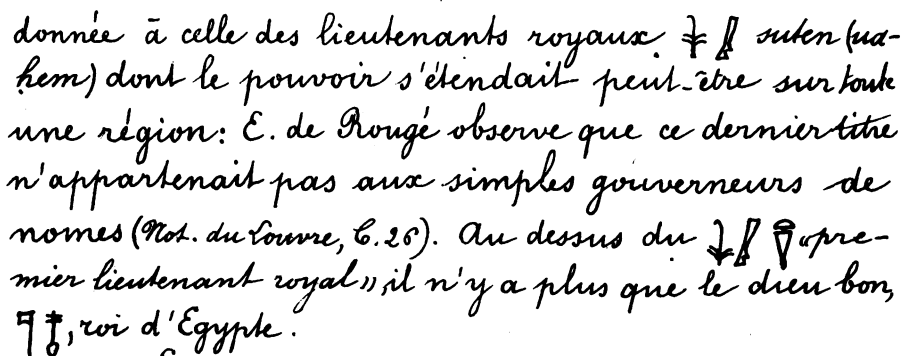 donnée à celle des lieutenants royaux 𓇓𓅱 suten (ua-
ḥem) dont le pouvoir s'étendait peut-être sur toute
une région: E. de Rougé observe que ce dernier titre
n'appartenait pas aux simples gouverneurs de
nomes (Not. du Louvre, C. 26). Au dessus du «pre-
mier lieutenant royal», il n'y a plus que le dieu bon,
𓊹𓄤, roi d'Egypte.